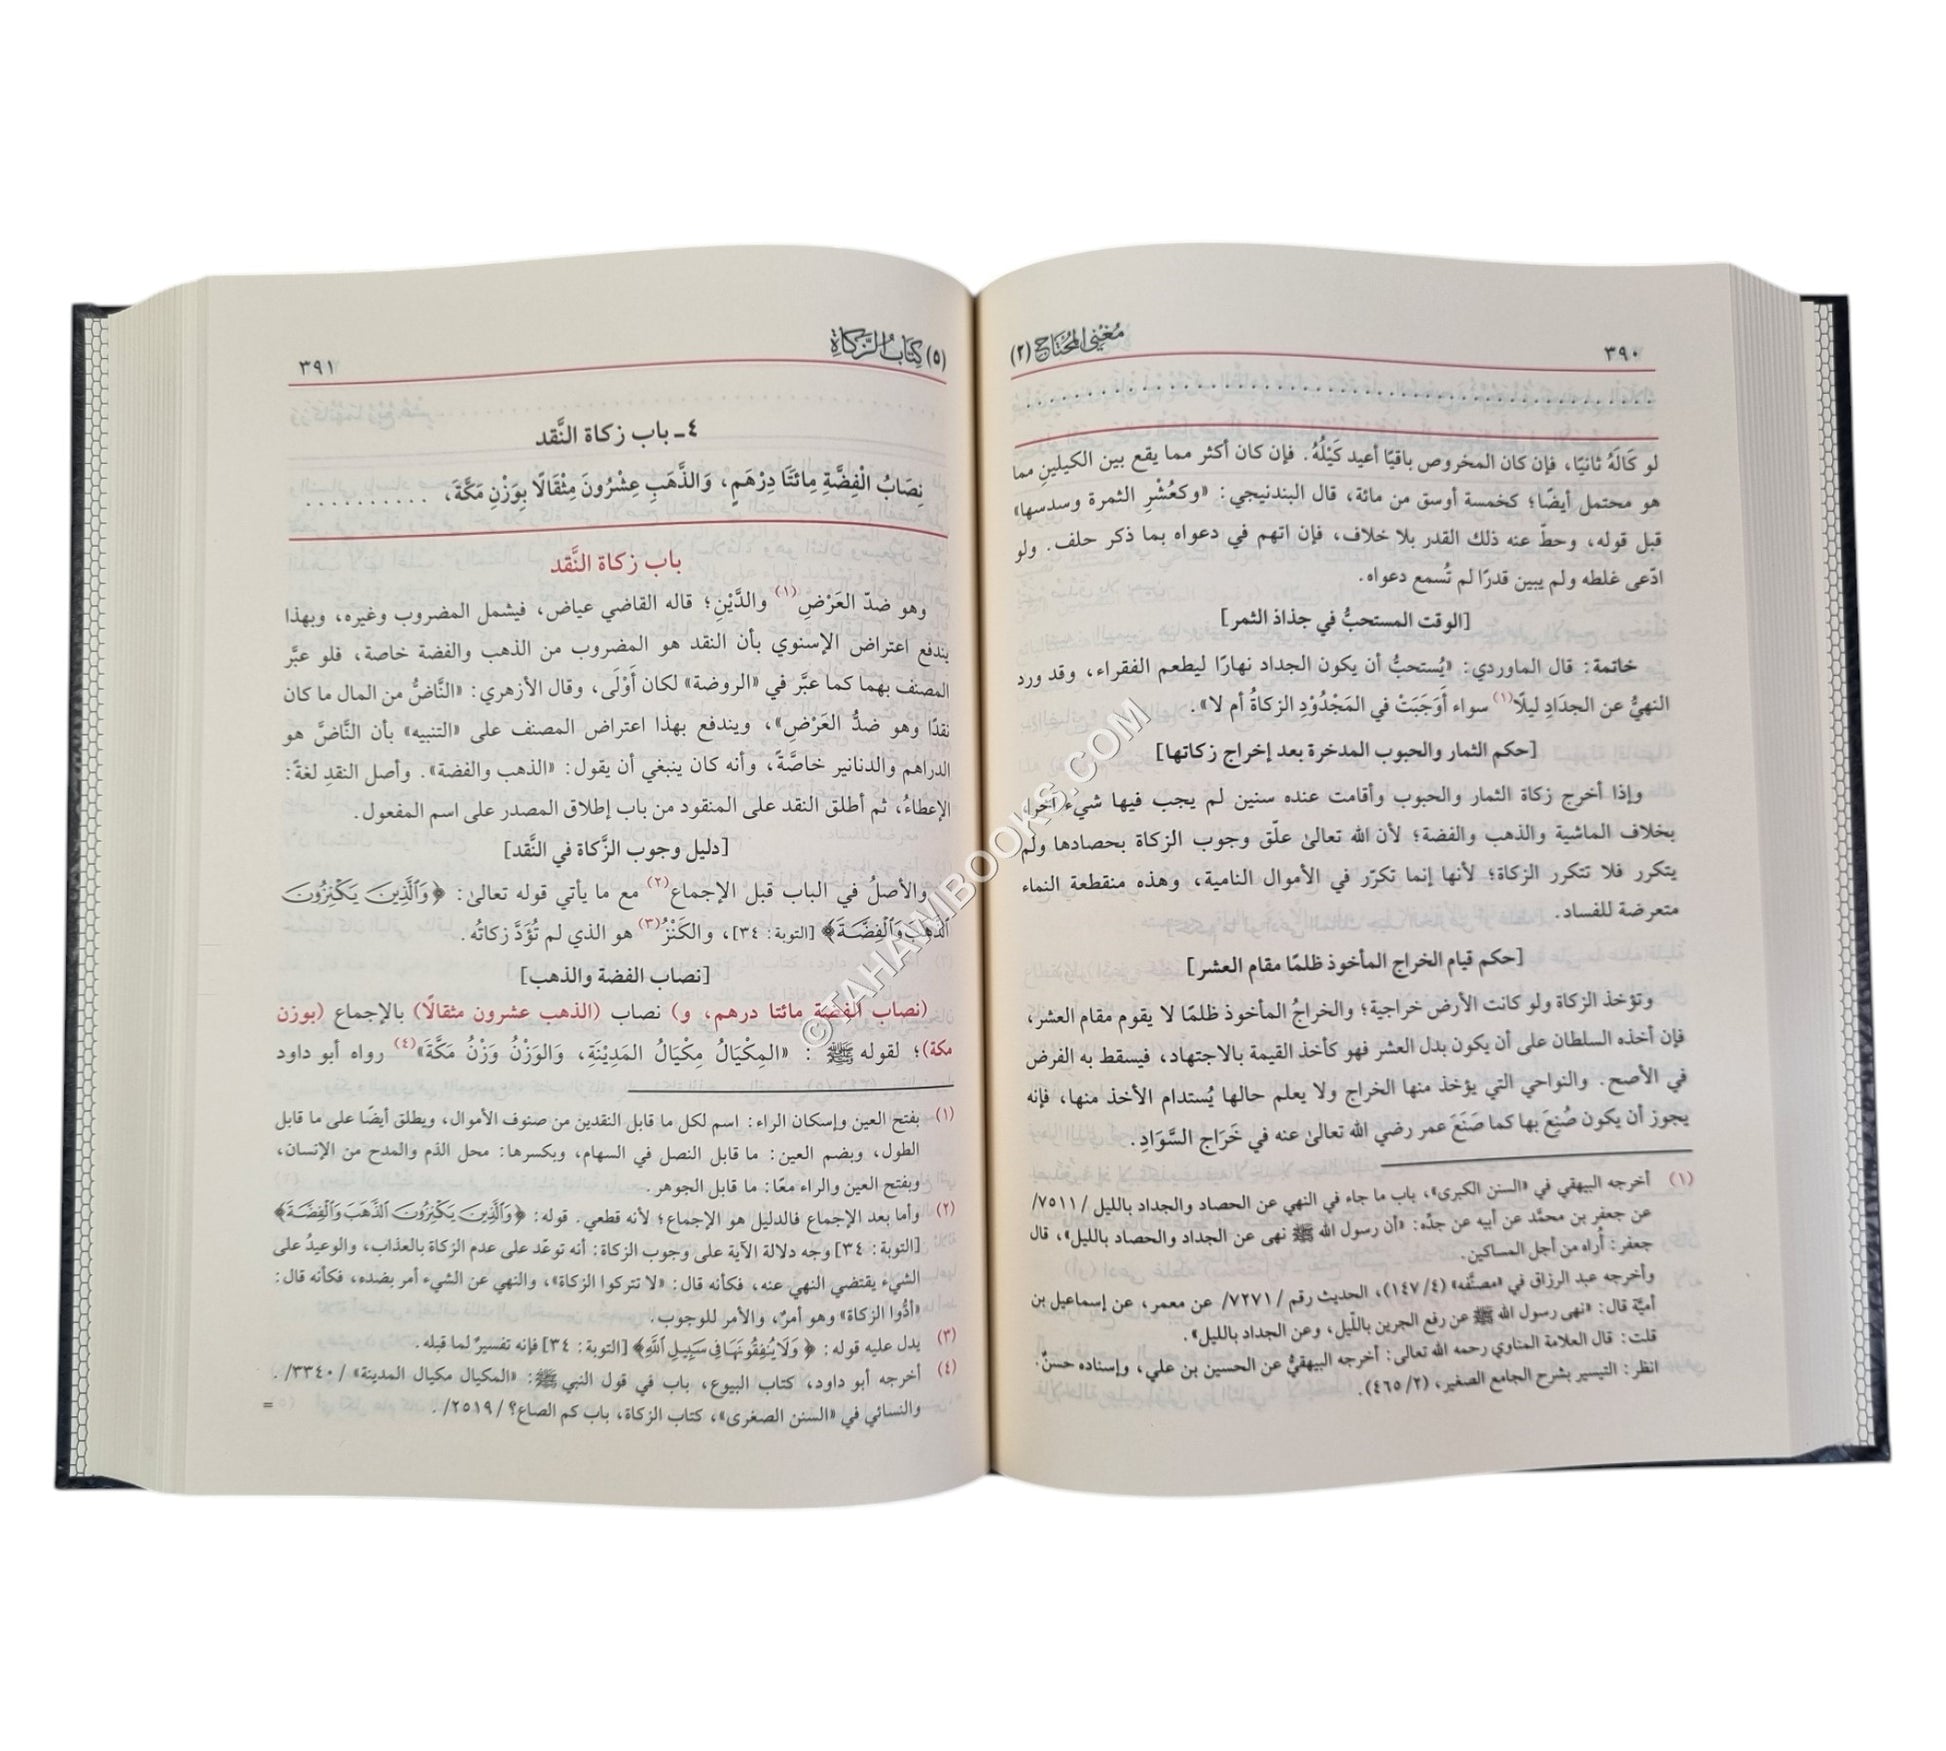 ٣٩٠
مغني المحتاج (٢)
لو كَالَهُ ثانيًا، فإن كان المخروص باقيًا أعيد كَيْلُهُ. فإن كان أكثر مما يقع بين الكيلين مما
هو محتمل أيضًا؛ كخمسة أوسق من مائة، قال البندنيجي: «وكعُشْرِ الثمرة وسدسها»
قبل قوله، وحطّ عنه ذلك القدر بلا خلاف، فإن اتهم في دعواه بما ذكر حلف. ولو
ادّعى غلطه ولم يبين قدرًا لم تُسمع دعواه.
[الوقت المستحبُّ في جذاذ الثمر]
خاتمة: قال الماوردي: «يُستحبُّ أن يكون الجداد نهارًا ليطعم الفقراء، وقد ورد
النهيُّ عن الجدَادِ ليلًا(١) سواء أَوَجَبَتْ في المَجْدُوْدِ الزكاةُ أم لا».
[حكم الثمار والحبوب المدخرة بعد إخراج زكاتها]
وإذا أخرج زكاة الثمار والحبوب وأقامت عنده سنين لم يجب فيها شيء آخر،
بخلاف الماشية والذهب والفضة؛ لأن الله تعالىٰ علّق وجوب الزكاة بحصادها ولم
يتكرر فلا تتكرر الزكاة؛ لأنها إنما تكرّر في الأموال النامية، وهذه منقطعة النماء
متعرضة للفساد.
[حكم قيام الخراج المأخوذ ظلمًا مقام العشر]
وتؤخذ الزكاة ولو كانت الأرض خراجية؛ والخراجُ المأخوذ ظلمًا لا يقوم مقام العشر،
فإن أخذه السلطان على أن يكون بدل العشر فهو كأخذ القيمة بالاجتهاد، فيسقط به الفرض
في الأصح. والنواحي التي يؤخذ منها الخراج ولا يعلم حالها يُستدام الأخذ منها، فإنه
يجوز أن يكون صُنِعَ بها كما صَنَعَ عمر رضي الله تعالىٰ عنه في خَرَاجِ السَّوَادِ.
(١) أخرجه البيهقي في «السنن الكبرى»، باب ما جاء في النهي عن الحصاد والجداد بالليل /٧٥١١/
عن جعفر بن محمَّد عن أبيه عن جدِّه: «أن رسول الله ﷺ نهى عن الجداد والحصاد بالليل»، قال
جعفر: أُراه من أجل المساكين.
وأخرجه عبد الرزاق في «مصنَّفه» (٤/ ١٤٧)، الحديث رقم /٧٢٧١/ عن معمر، عن إسماعيل بن
أميَّة قال: «نهى رسول الله ﷺ عن رفع الجرين باللّيل، وعن الجداد بالليل».
قلت: قال العلامة المناوي رحمه الله تعالى: أخرجه البيهقيُّ عن الحسين بن علي، وإسناده حسنٌ.
انظر: التيسير بشرح الجامع الصغير، (٢/ ٤٦٥).
(٥) كتاب الزكاة
٣٩١
٤ـ باب زكاة النَّقد
نِصَابُ الْفِضَّةِ مِائتَا دِرْهَمٍ، وَالذَّهَبِ عِشْرُونَ مِثْقَالًا بِوَزْنِ مَكَّةَ، ..........
باب زكاة النَّقد
وهو ضدّ العَرْضِ(١) والدَّيْنِ؛ قاله القاضي عياض، فيشمل المضروب وغيره، وبهذا
يندفع اعتراض الإسنوي بأن النقد هو المضروب من الذهب والفضة خاصة، فلو عبَّر
المصنف بهما كما عبَّر في «الروضة» لكان أَوْلَى، وقال الأزهري: «النَّاضُّ من المال ما كان
نقدًا وهو ضدُّ العَرْضِ»، ويندفع بهذا اعتراض المصنف على «التنبيه» بأن النَّاضَّ هو
الدراهم والدنانير خاصَّةً، وأنه كان ينبغي أن يقول: «الذهب والفضة». وأصل النقدِ لغةً:
الإعطاءُ، ثم أطلق النقد على المنقود من باب إطلاق المصدر على اسم المفعول.
[دليل وجوب الزَّكاة في النَّقد]
والأصلُ في الباب قبل الإجماع(٢) مع ما يأتي قوله تعالىٰ: ﴿وَٱلَّذِينَ يَكْنِزُونَ
ٱلذَّهَبَ وَٱلْفِضَّةَ﴾ [التوبة: ٣٤]، والكَنْزُ(٣) هو الذي لم تُؤَدَّ زكاتُه.
[نصاب الفضة والذهب]
(نصاب الفضة مائتا درهم، و) نصاب (الذهب عشرون مثقالًا) بالإجماع (بوزن
مكة)؛ لقوله ﷺ: «المِكْيَالُ مِكْيَالُ المَدِيْنَةِ، وَالوَزْنُ وَزْنُ مَكَّةَ»(٤) رواه أبو داود
(١) بفتح العين وإسكان الراء: اسم لكل ما قابل النقدين من صنوف الأموال، ويطلق أيضًا على ما قابل
الطول، وبضم العين: ما قابل النصل في السهام، وبكسرها: محل الذم والمدح من الإنسان،
وبفتح العين والراء معًا: ما قابل الجوهر.
(٢) وأما بعد الإجماع فالدليل هو الإجماع؛ لأنه قطعي. قوله: ﴿وَٱلَّذِينَ يَكْنِزُونَ ٱلذَّهَبَ وَٱلْفِضَّةَ﴾
[التوبة: ٣٤] وجه دلالة الآية على وجوب الزكاة: أنه توعّد على عدم الزكاة بالعذاب، والوعيدُ على
الشيء يقتضي النهي عنه، فكأنه قال: «لا تتركوا الزكاة»، والنهي عن الشيء أمر بضده، فكأنه قال:
«أدُّوا الزكاة» وهو أمرٌ، والأمر للوجوب.
(٣) يدل عليه قوله: ﴿وَلَا يُنفِقُونَهَا فِي سَبِيلِ ٱللَّهِ﴾ [التوبة: ٣٤] فإنه تفسيرٌ لما قبله.
(٤) أخرجه أبو داود، كتاب البيوع، باب في قول النبي ﷺ: «المكيال مكيال المدينة» /٣٣٤٠/.
والنسائي في «السنن الصغرى»، كتاب الزكاة، باب كم الصاع؟ /٢٥١٩/. =
© TAHAMBOOKS.COM